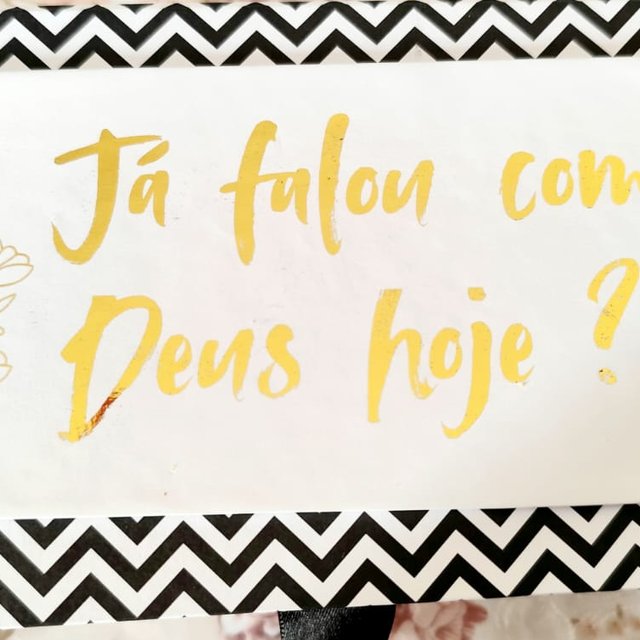 Já falou com
Deus hoje ?